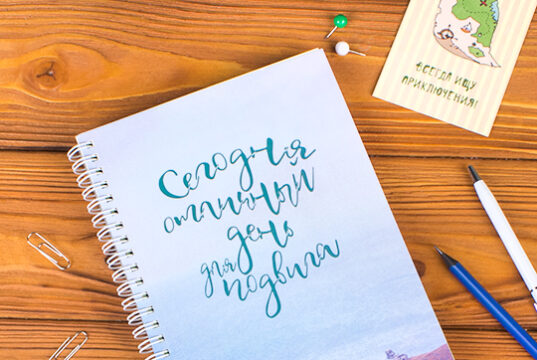 Сегодня
отличный
день
для подвига
ВСЕГДА ИЩУ
ПРИКЛЮЧЕНИЯ!